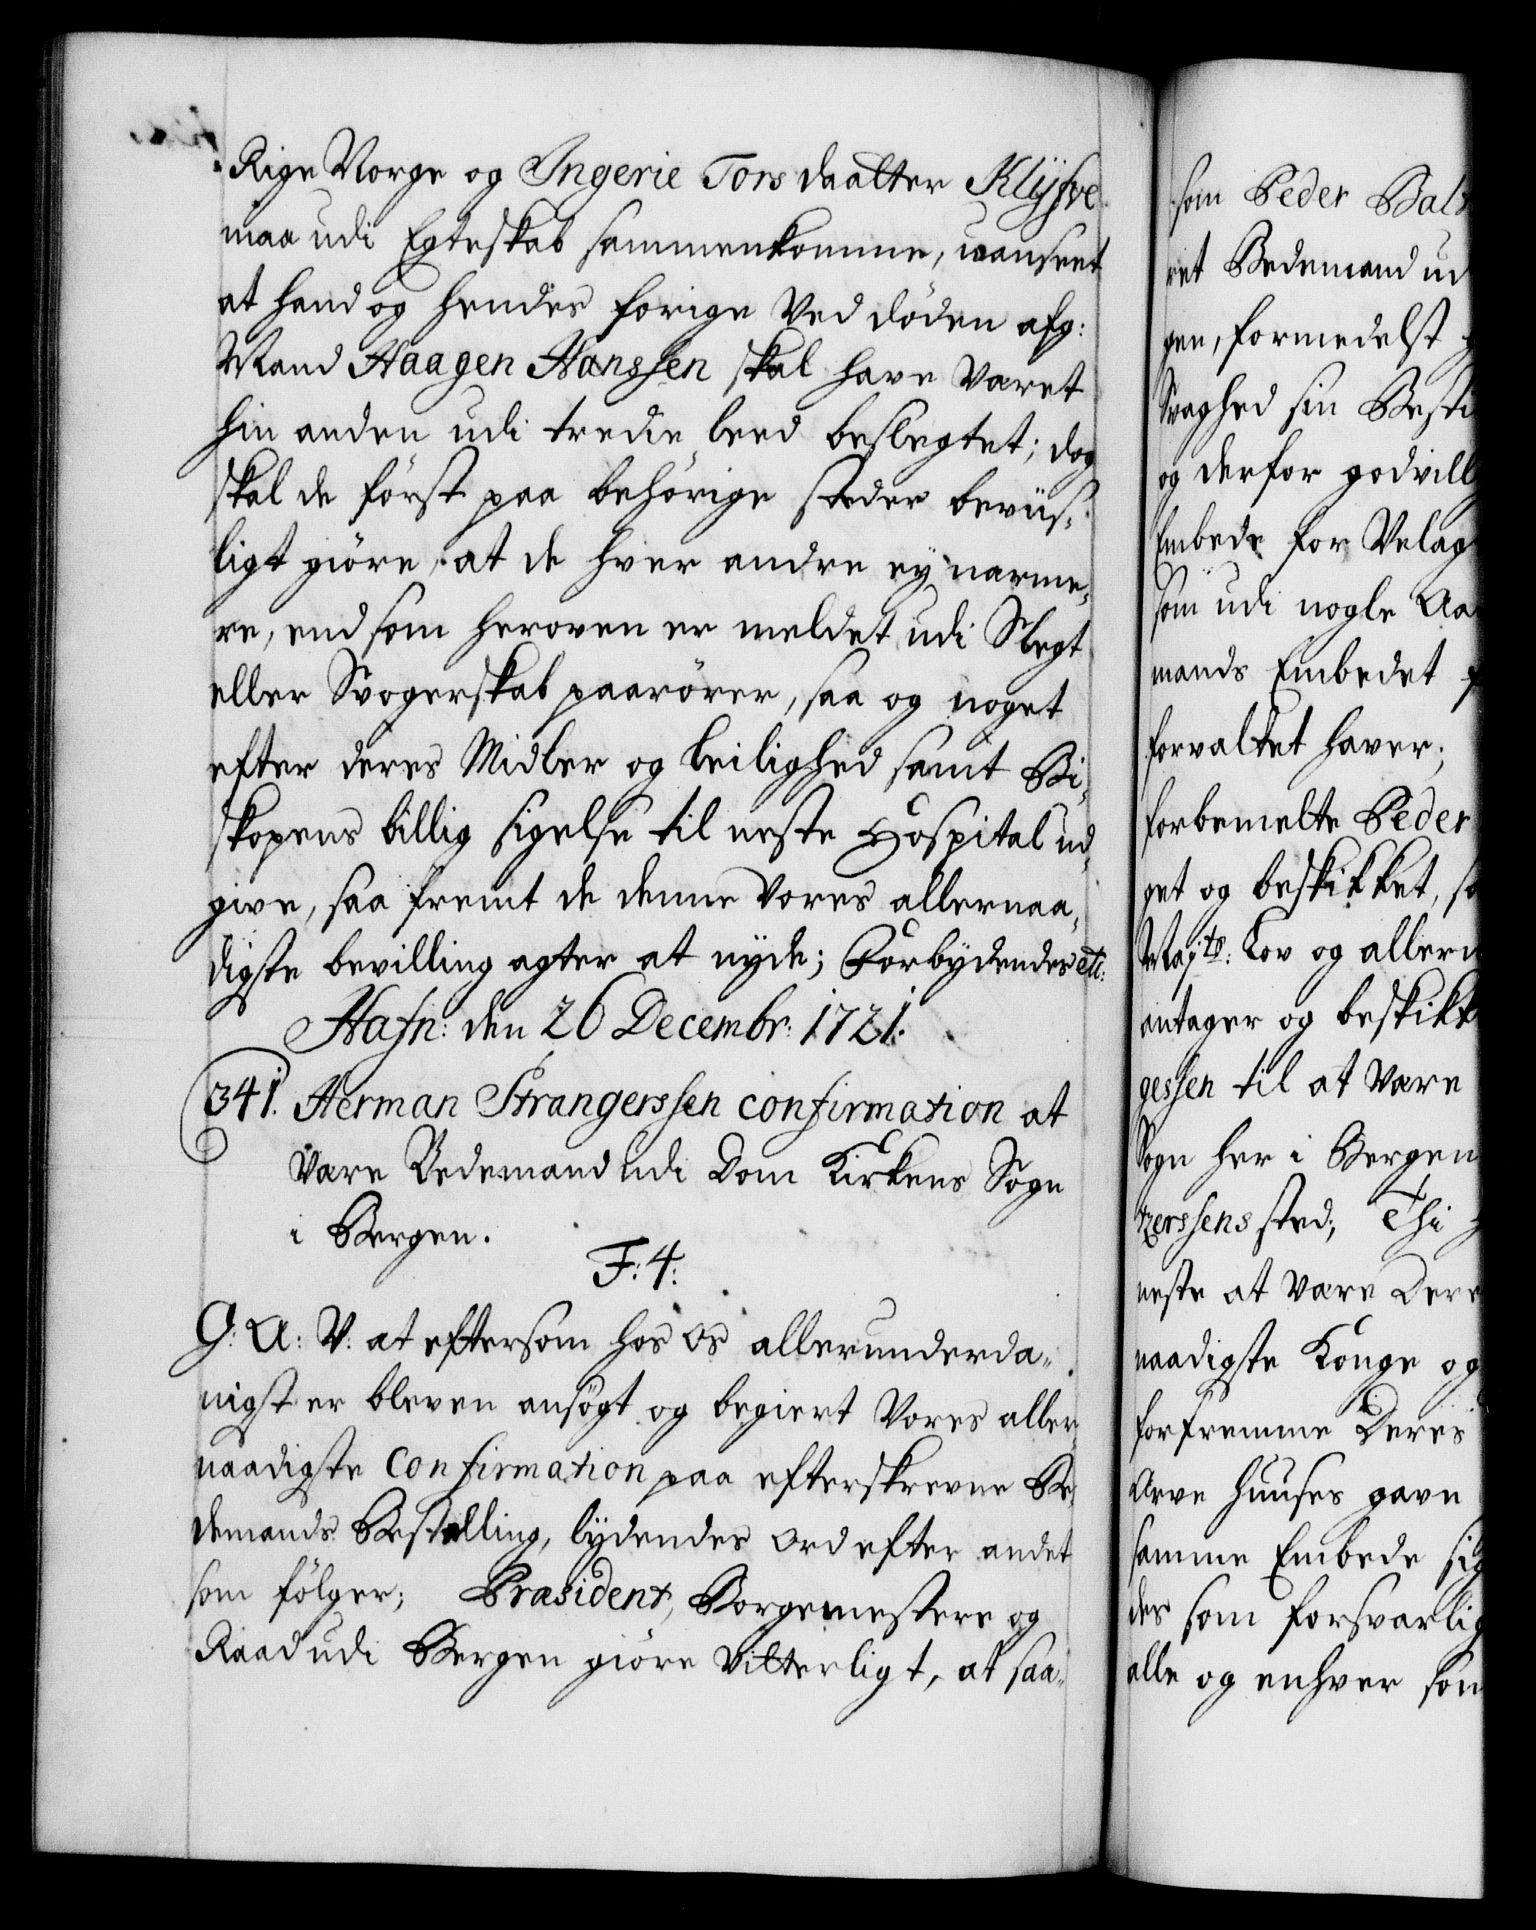 Rige Norge og Ingerie Tors daatter Klÿfve
maa udi Egteskab sammenkomme, uanseet
at hand og hendes forige Ved döden afg:
Mand Haagen Hanssen skal have Været
hin anden udi tredie leed beslegtet; dog
skal de först paa behörige stæder beviis-
ligt giöre, at de hver andre ey nærme-
re, end som heroven er meldet udi Slegt
eller Svogerskab paarörer, saa og noget
efter deres Midler og Leilighed samt Bi-
skopens billig sigelse til neste Hospital ud-
give, saa fremt de denne Vores allernaa-
digste bevilling agter at nyde; Forbydendes etc:
Hafn: den 26 Decembr: 1721.
341. Herman Strangerssen confirmation at
Være Bedemand udi Dom Kirkens Sogn
i Bergen.
F: 4:
G: A: V: at eftersom hos os allerunderda-
nigst er bleven ansögt og begiert Vores aller-
naadigste Confirmation paa efterskrevne Be-
demands Bestalling, lydendes ord efter andet
som fölger; Præsident, Borgemestere og
Raad udi Bergen giöre Vitterligt, at saa-
som Peder Balt
ret Bedemand ud
gen, formedelst
Svaghed sin Besti
og derfor godvill
Embede for Velag
som udi nogle Aa
mands Embedet
forvaltet haver;
forbemelte Peder
get og beskikket, so
Maj:ts: Lov og allern
antager og beskikk
gessen til at Være
Sogn her i Bergen
tzerssens sted; Thi
neste at Være Dere
naadigste Konge og
forfremme Deres
Arve Huuses gavn
samme Embede sig
des som forsvarlig
alle og enhver som